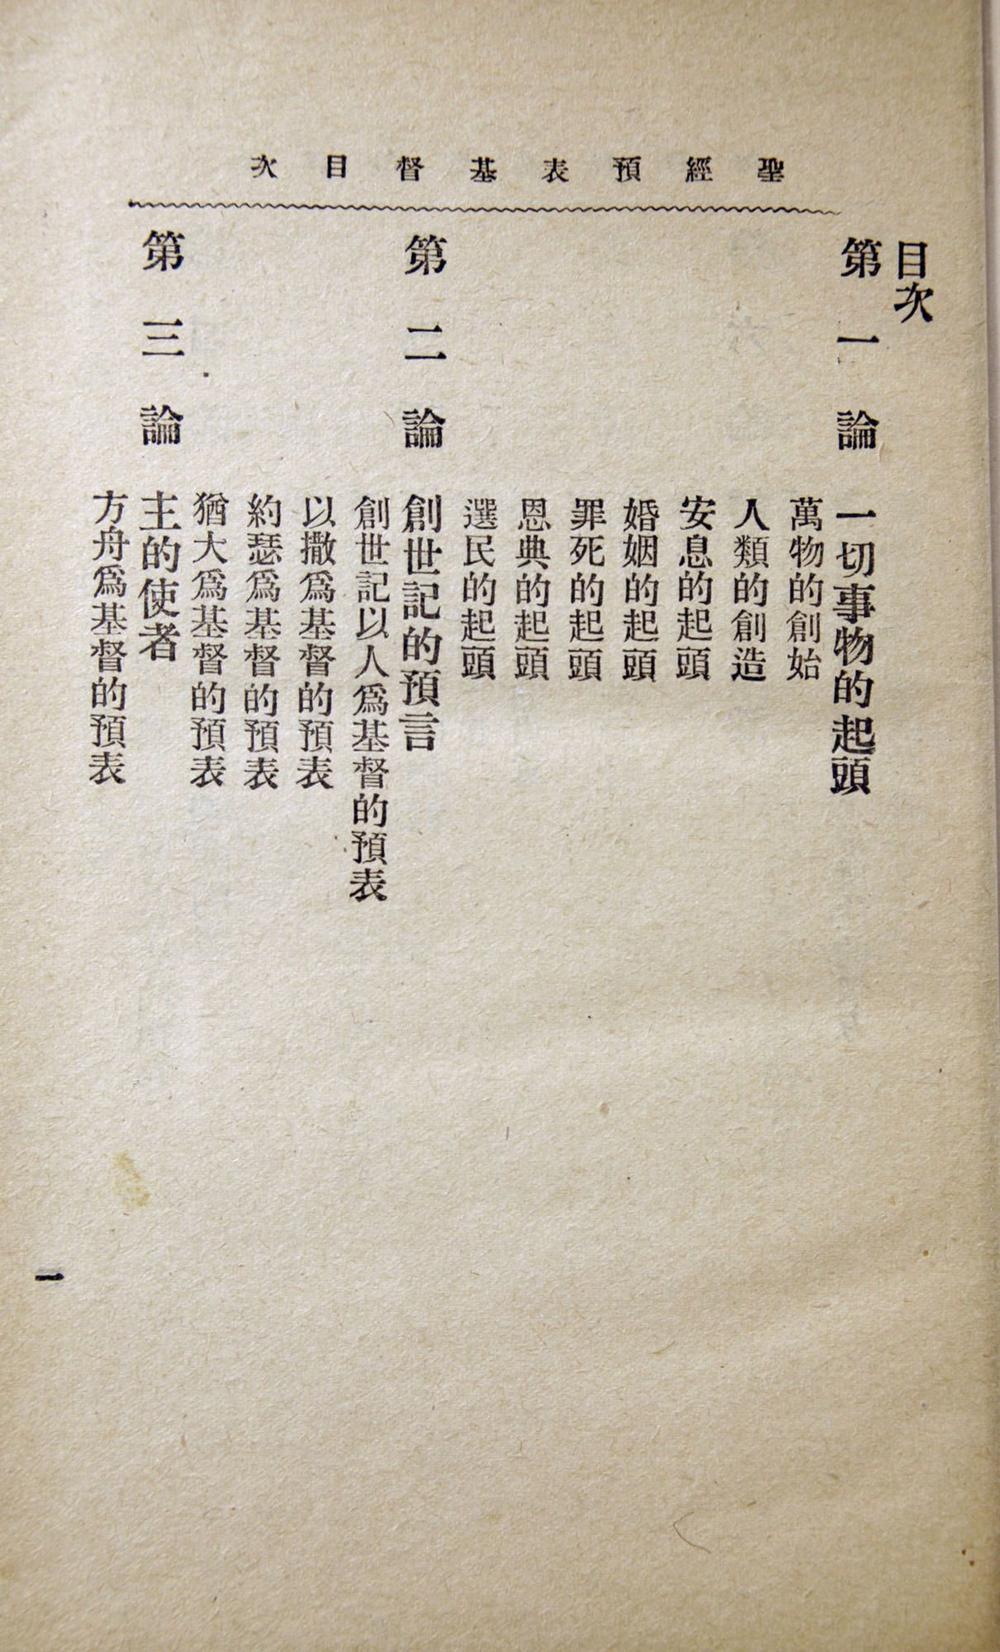 聖經預表基督目次
目次
第一論 一切事物的起頭
萬物的創始
人類的創造
安息的起頭
婚姻的起頭
罪死的起頭
恩典的起頭
選民的起頭
第二論 創世記的預言
創世記以人爲基督的預表
以撒爲基督的預表
約瑟爲基督的預表
猶大爲基督的預表
第三論 主的使者
方舟爲基督的預表
一